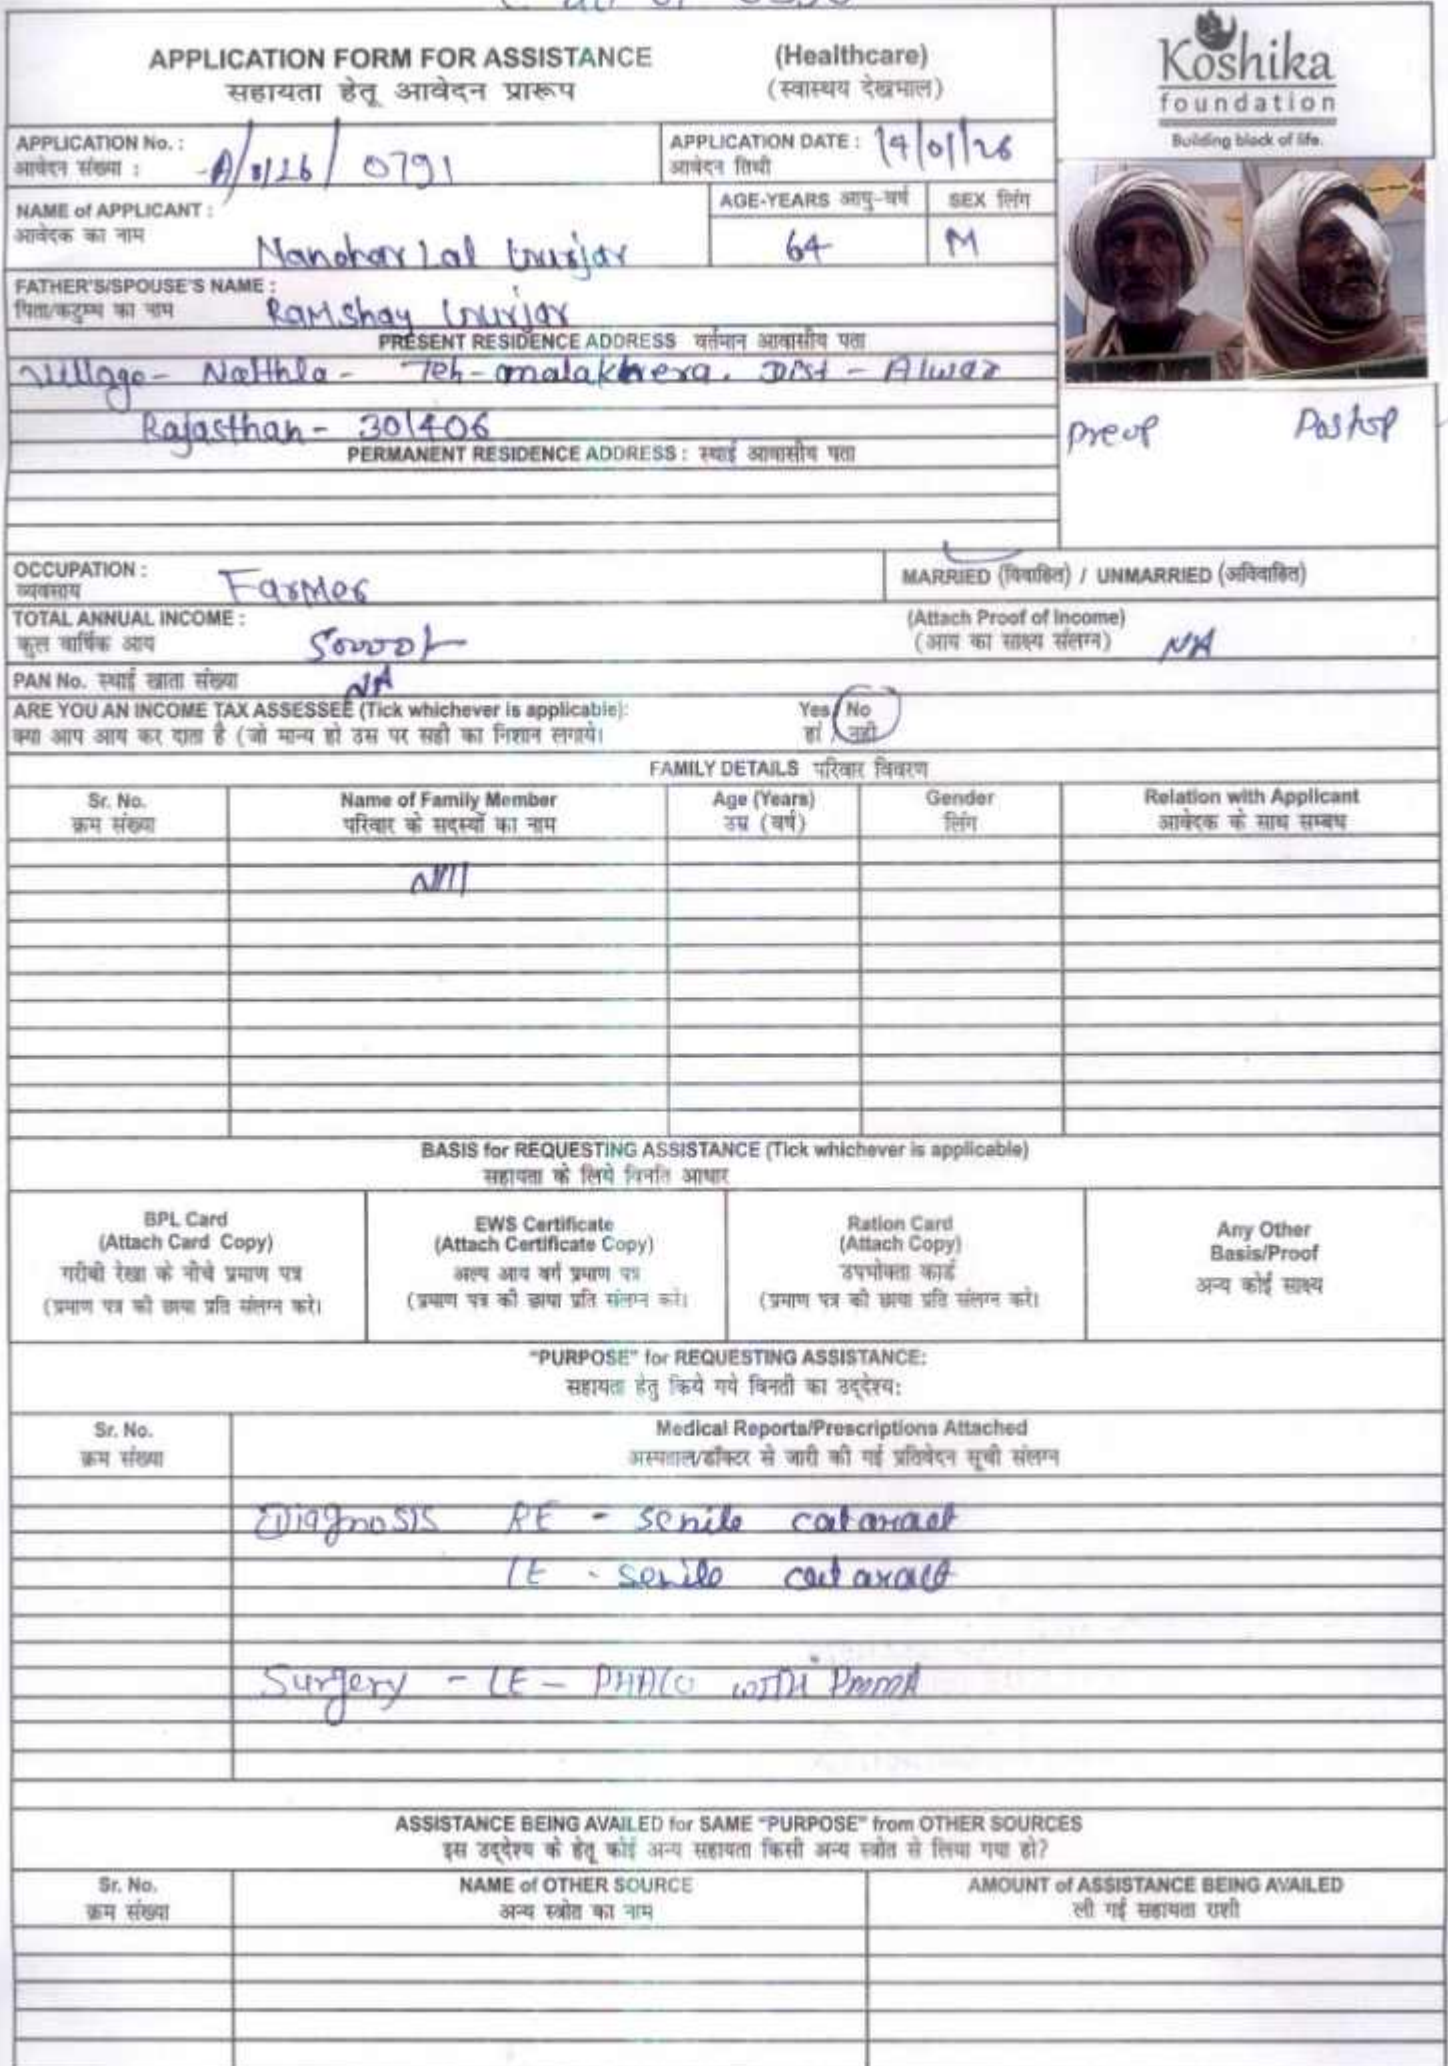 APPLICATION FORM FOR ASSISTANCE (Healthcare)
सहायता हेतू आवेदन प्रारूप (स्वास्थय देखभाल)
Koshika
foundation
Building block of life.
APPLICATION No. : A/1/26/0791
आवेदन संख्या :
APPLICATION DATE : 14/01/26
आवेदन तिथी
NAME of APPLICANT : Manohar Lal Gurjar
आवेदक का नाम
AGE-YEARS आयु-वर्ष 64
SEX लिंग M
FATHER'S/SPOUSE'S NAME : Ramshay Gurjar
पिता/कटुम्ब का नाम
PRESENT RESIDENCE ADDRESS वर्तमान आवासीय पता
Village- Natthla- Teh-malakhera. Dist - Alwar
Rajasthan- 301406
Preop Postop
PERMANENT RESIDENCE ADDRESS : स्थाई आवासीय पता
OCCUPATION : Farmer
व्यवसाय
MARRIED (विवाहित) / UNMARRIED (अविवाहित)
TOTAL ANNUAL INCOME :
कुल वार्षिक आय
(Attach Proof of Income)
(आय का साक्ष्य संलग्न) NA
PAN No. स्थाई खाता संख्या NA
ARE YOU AN INCOME TAX ASSESSEE (Tick whichever is applicable): Yes / No
क्या आप आय कर दाता है (जो मान्य हो उस पर सही का निशान लगाये। हां / नही
FAMILY DETAILS परिवार विवरण
Sr. No. Name of Family Member Age (Years) Gender Relation with Applicant
क्रम संख्या परिवार के सदस्यों का नाम उम्र (वर्ष) लिंग आवेदक के साथ सम्बध
Nil
BASIS for REQUESTING ASSISTANCE (Tick whichever is applicable)
सहायता के लिये विनति आधार
BPL Card
(Attach Card Copy)
गरीबी रेखा के नीचे प्रमाण पत्र
(प्रमाण पत्र की छाया प्रति संलग्न करे।
EWS Certificate
(Attach Certificate Copy)
अल्प आय वर्ग प्रमाण पत्र
(प्रमाण पत्र की छाया प्रति संलग्न करे।
Ration Card
(Attach Copy)
उपभोक्ता कार्ड
(प्रमाण पत्र की छाया प्रति संलग्न करे।
Any Other
Basis/Proof
अन्य कोई साक्ष्य
"PURPOSE" for REQUESTING ASSISTANCE:
सहायता हेतु किये गये विनती का उद्देश्य:
Sr. No. Medical Reports/Prescriptions Attached
क्रम संख्या अस्पताल/डॉक्टर से जारी की गई प्रतिवेदन सूची संलग्न
Diagnosis RE - senile cataract
LE - senile cataract
Surgery - LE - PHACO WITH PMMA
ASSISTANCE BEING AVAILED for SAME "PURPOSE" from OTHER SOURCES
इस उद्देश्य के हेतू कोई अन्य सहायता किसी अन्य स्त्रोत से लिया गया हो?
Sr. No. NAME of OTHER SOURCE AMOUNT of ASSISTANCE BEING AVAILED
क्रम संख्या अन्य स्त्रोत का नाम ली गई सहायता राशी